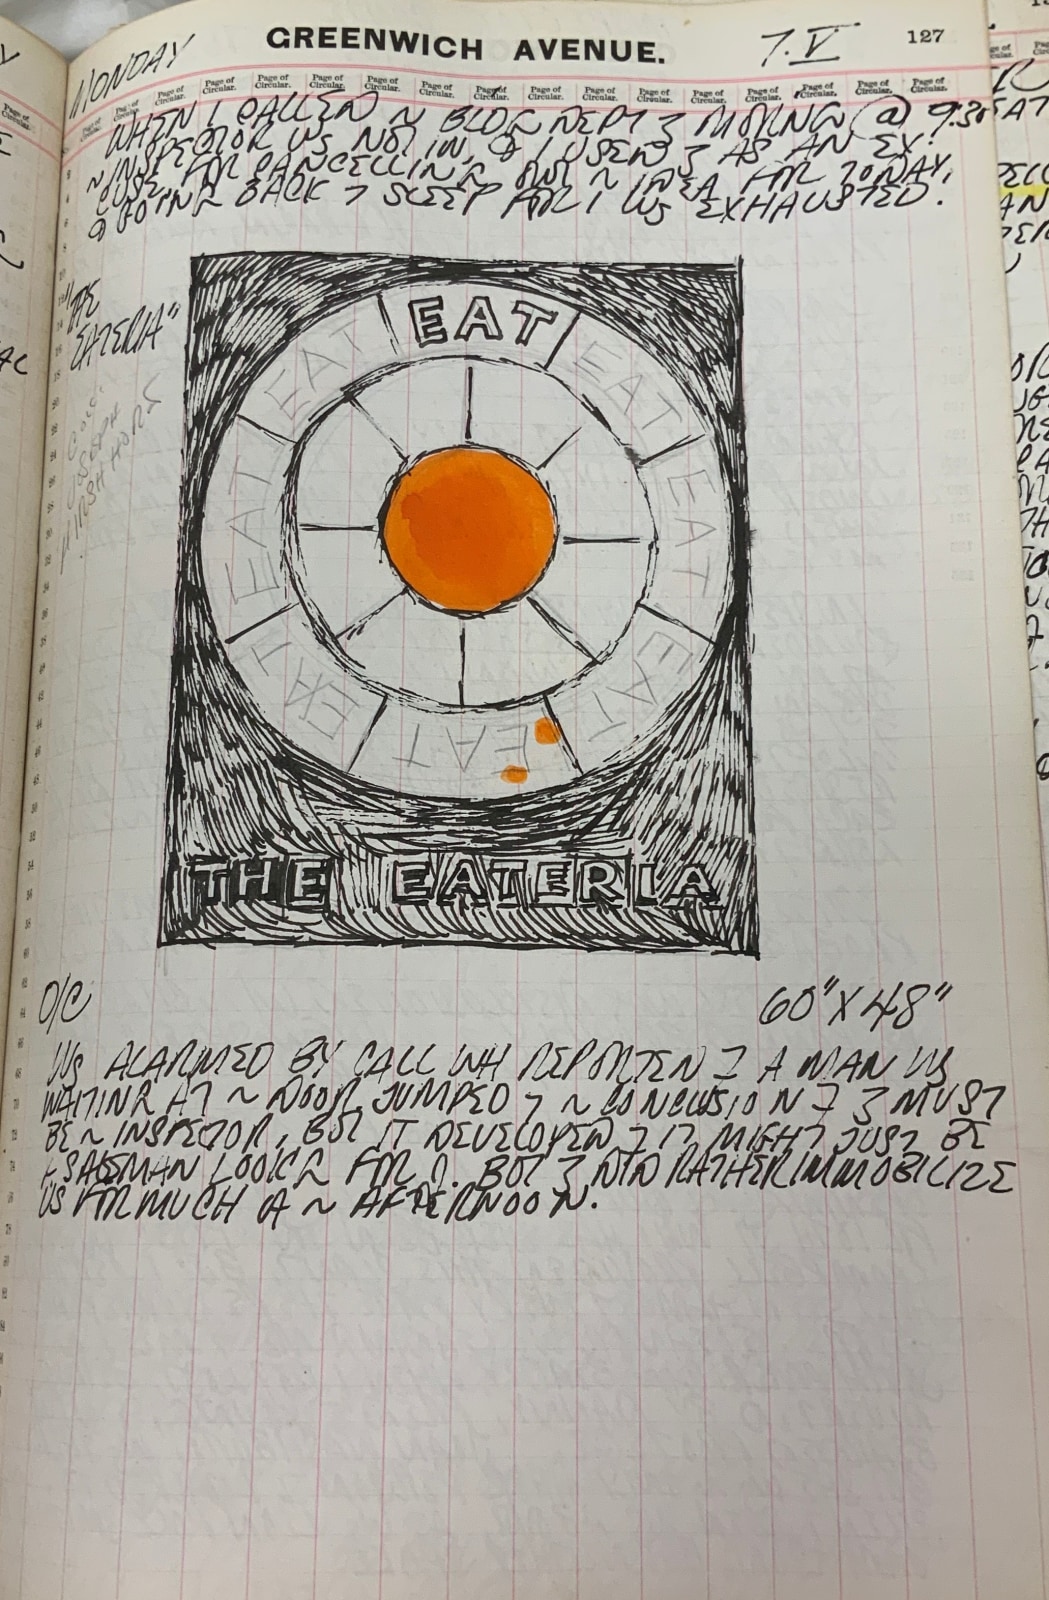 GREENWICH AVENUE.
127
MONDAY
7.V
Page of Circular. Page of Circular. Page of Circular. Page of Circular. Page of Circular. Page of Circular. Page of Circular. Page of Circular. Page of Circular. Page of Circular. Page of Circular. Page of Circular. Page of Circular. Page of Circular. Page of Circular. Page of Circular.
WHEN I CALLED ~ BLDG DEPT 3 MORNING @ 9.30
~ INSPECTOR WS NOT IN, & I USED 3 AS AN EX-
CUSE FOR CANCELLING OUT ~ IDEA FOR TODAY,
& GOING BACK 7 SLEEP FOR I WS EXHAUSTED.
"THE
EATERIA"
COLL:
JOSEPH
HIRSHHORN
EAT
EAT
EAT
EAT
EAT
EAT
EAT
EAT
THE EATERIA
O/C
60" X 48"
WS ALARMED BY CALL WH REPORTED 7 A MAN WS
WAITING AT ~ DOOR, JUMPED 7 ~ CONCLUSION 7 3 MUST
BE ~ INSPECTOR, BUT IT DEVELOPED 7 IT MIGHT JUST BE
A SALESMAN LOOKG FOR J. BUT 3 DID RATHER IMMOBILIZE
US FOR MUCH O ~ AFTERNOON.